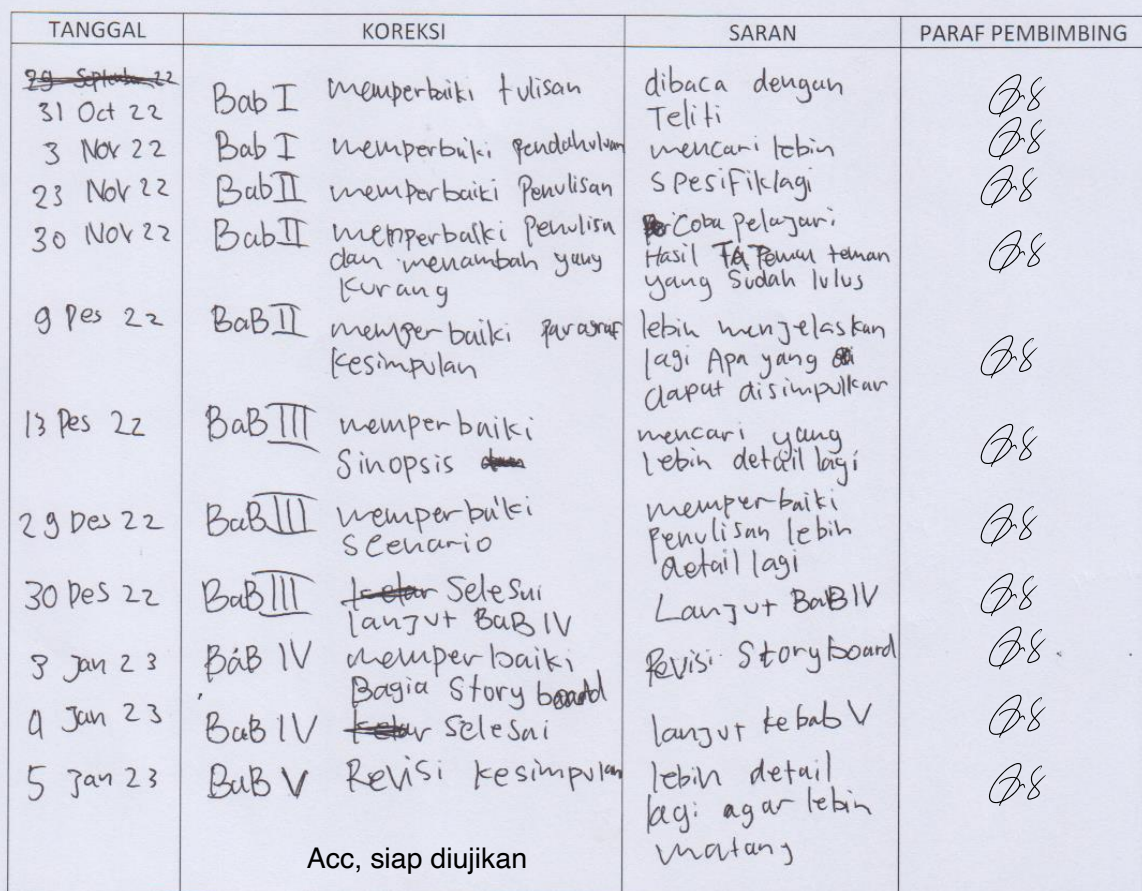 TANGGAL KOREKSI SARAN PARAF PEMBIMBING
31 Oct 22 Bab I memperbaiki tulisan dibaca dengan
Teliti
3 Nov 22 Bab I memperbaiki pendahuluan mencari lebih
23 Nov 22 Bab II memperbaiki Penulisan spesifik lagi
30 Nov 22 Bab II memperbaiki Penulisn Coba pelajari
dan menambah yang Hasil TA teman
kurang yang sudah lulus
9 Des 22 BaB II memperbaiki paragraf lebih menjelaskan
kesimpulan lagi Apa yang
dapat disimpulkan
13 Des 22 BaB III memperbaiki mencari yang
Sinopsis lebih detail lagi
29 Des 22 BaB III memperbaiki memperbaiki
Scenario penulisan lebih
detail lagi
30 Des 22 BaB III Selesai Lanjut BaB IV
lanjut BaB IV
3 Jan 23 BaB IV memperbaiki Revisi Storyboard
Bagia Story board
Jan 23 BaB IV Selesai lanjut kebab V
5 Jan 23 BaB V Revisi kesimpulan lebih detail
lagi agar lebih
matang
Acc, siap diujikan